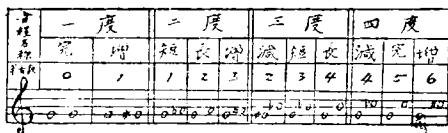 音程名称 一度 二度 三度 四度
完 增 短 長 增 減 短 長 減 完 增
半音數 0 1 1 2 3 2 3 4 4 5 6